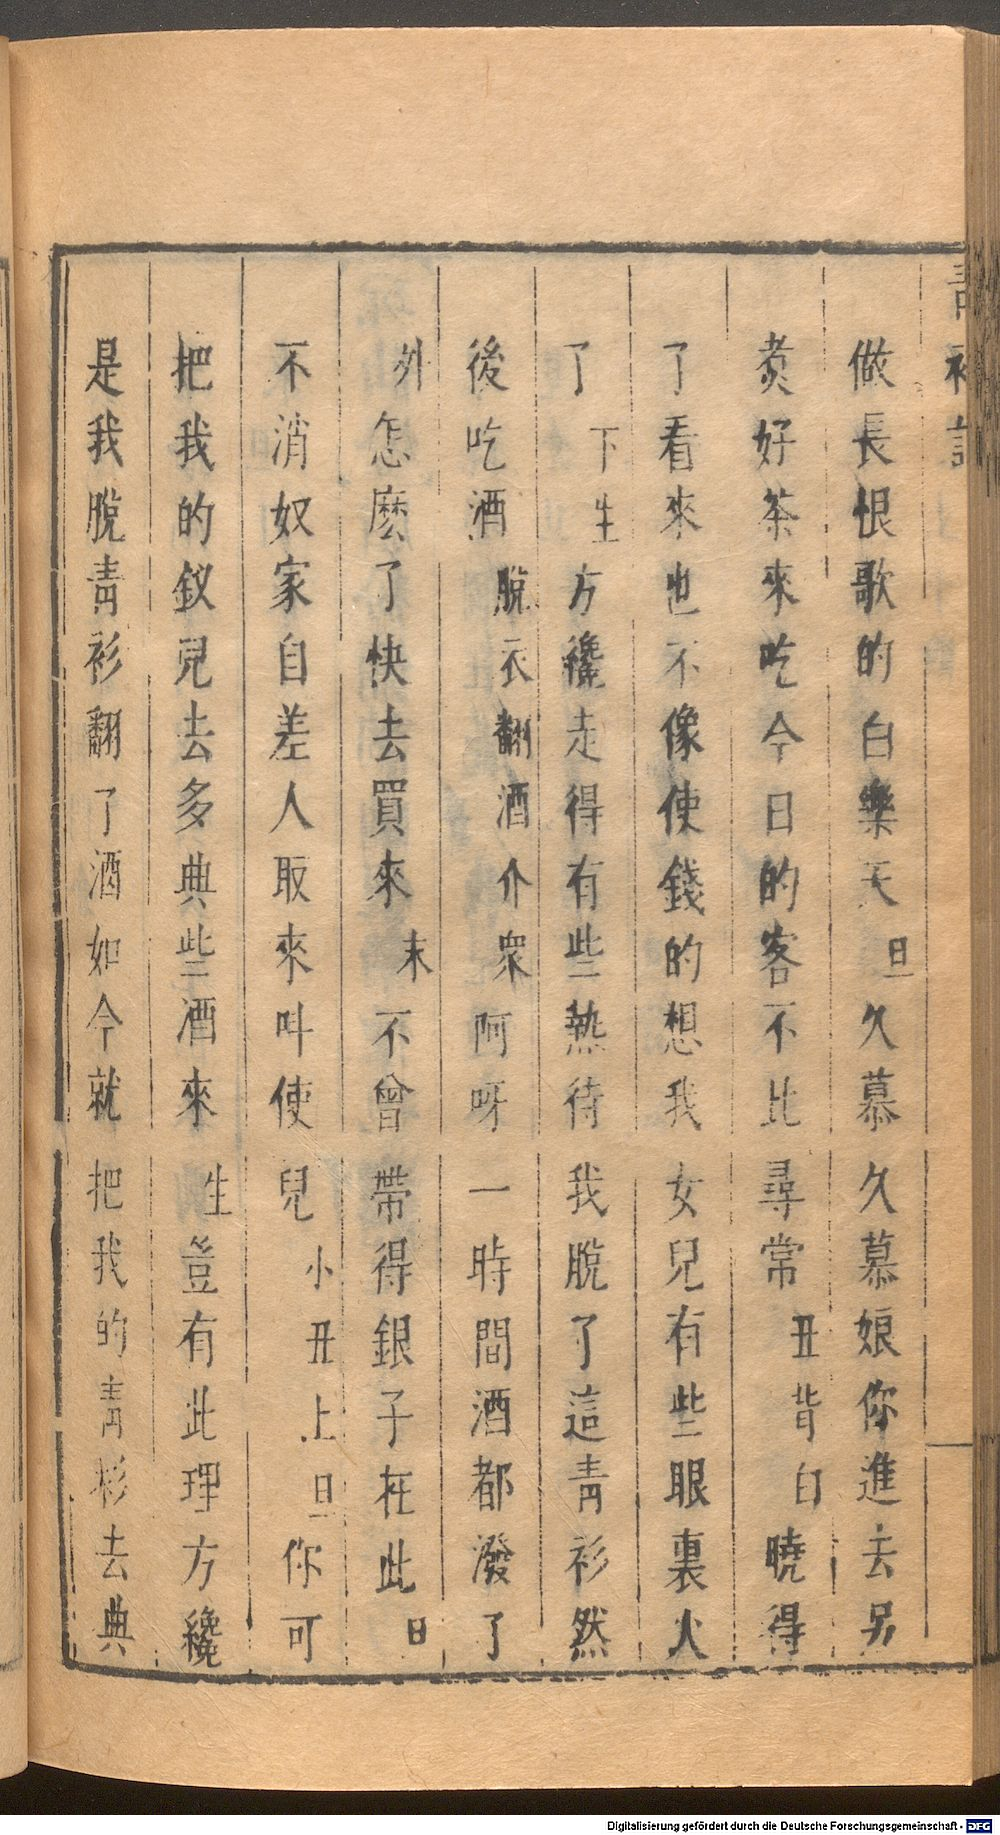 做長恨歌的白樂天旦久慕久慕娘你進去另
煑好茶來吃今日的客不比尋常丑背白曉得
了看來也不像使錢的想我女兒有些眼裏火
了下生方纔走得有些熱待我脫了這靑衫然
後吃酒脫衣翻酒介衆阿呀一時間酒都潑了
外怎麽了快去買來末不曾帶得銀子在此旦
不消奴家自差人取來叫使兒小丑上旦你可
把我的釵兒去多典些酒來生豈有此理方纔
是我脫靑衫翻了酒如今就把我的靑衫去典
Digitalisierung gefördert durch die Deutsche Forschungsgemeinschaft - DFG